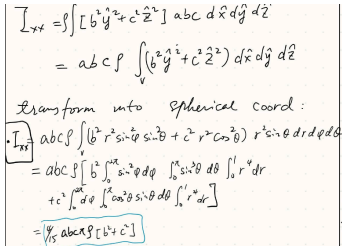 I_xx = ρ∫[b²ŷ²+c²ẑ²] abc dx̂dŷ dẑ
= abc ρ ∫_V (b²ŷ²+c²ẑ²) dx̂ dŷ dẑ
transform into spherical coord:
• I_xx = abcρ∫_V (b²r²sin²φ sin²θ + c²r²cos²θ) r²sinθ dr dφ dθ
= abcρ [b²∫₀^2π sin²φdφ ∫₀^π sin³θ dθ ∫₀¹ r⁴dr
+c²∫₀^2π dφ ∫₀^π cos²θ sinθ dθ ∫₀¹ r⁴dr]
= 4/15 abcπρ[b²+c²]